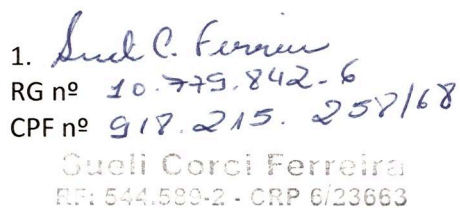 1. Sueli C. Ferreira
RG nº 10.779.842-6
CPF nº 918.215.258/68
Sueli Corci Ferreira
RF: 544.589-2 - CRP 6/23663